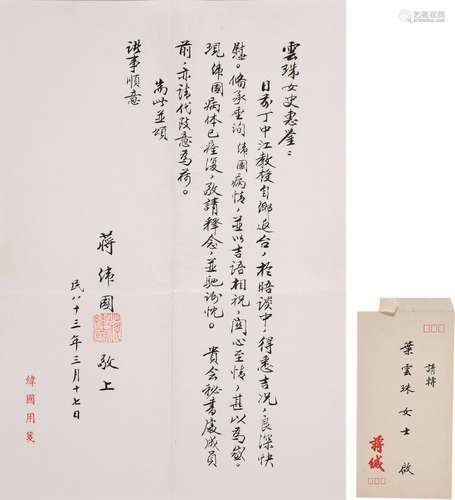 艺狐在线
雲珠女史惠鉴：
日前丁中江教授自鄉返台，於晤談中得悉吉况，良深快
慰。備承垂询緯國病情，並以吉語相祝，関心至情，甚以為感。
現緯國病体已痊復，敬請釋念，並馳謝忱。 貴会秘書處成員
前，亦請代致意為荷。
耑此並頌
諸事順意
蔣緯國 敬上
民八十三年三月十七日
緯國用箋
請轉
葉雲珠女士 啟
蔣緘